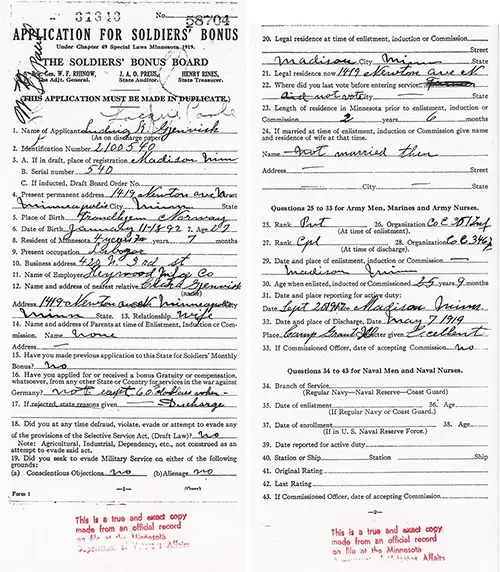 31343 No. 58704
APPLICATION FOR SOLDIERS' BONUS
Under Chapter 49 Special Laws Minnesota 1919.
THE SOLDIERS' BONUS BOARD
Gen. W. F. RHINOW, J. A. O. PREUS, HENRY RINES,
The Adjt. General. State Auditor. State Treasurer.
(THIS APPLICATION MUST BE MADE IN DUPLICATE.)
1. Name of Applicant Ludvig
(As on discharge paper)
2. Identification Number 2100540
3. A. If in draft, place of registration Madison Minn
B. Serial number 540
C. If inducted, Draft Board Order No.
4. Present permanent address 1419 Newton Ave N Street
Minneapolis City Minn State
5. Place of Birth Trondhjem Norway
6. Date of Birth January 11-18-92 7. Age 27
8. Resident of Minnesota 4 years 7 months
9. Present occupation Laborer
10. Business address 420 N 3rd St
11. Name of Employer Heywood Mfg Co
12. Name and address of nearest relative Clara
(name)
Address 1419 Newton Ave N Minneapolis City
Minn State. 13. Relationship Wife
14. Name and address of Parents at time of Enlistment, Induction or Commission.
Name None
Address
15. Have you made previous application to this State for Soldiers' Monthly
Bonus? no
16. Have you applied for or received a bonus Gratuity or compensation,
whatsoever, from any other State or Country for services in the war against
Germany? not except 60 Dollars when
17. If rejected, state reasons given Discharge
18. Did you at any time defraud, violate, evade or attempt to evade any
of the provisions of the Selective Service Act, (Draft Law)? no
Note: Agricultural, Industrial, Dependency, etc., not construed as an
attempt to evade said act.
19. Did you seek to evade Military Service on either of the following
grounds:
(a) Conscientious Objections no (b) Alienage no
Form 1 —1— (Over)
This is a true and exact copy
made from an official record
on file at the Minnesota
Department of Veterans Affairs
20. Legal residence at time of enlistment, induction or Commission
Street
Madison City Minn State
21. Legal residence now 1419 Newton Ave N
22. Where did you last vote before entering service?
did not vote City State
23. Length of residence in Minnesota prior to enlistment, induction or
Commission 2 years 6 months
24. If married at time of enlistment, induction or Commission give name
and residence of wife at that time.
Name not married then
Address Street
City State
Questions 25 to 33 for Army Men, Marines and Army Nurses.
25. Rank Pvt 26. Organization Co C
(At time of enlistment).
27. Rank Cpl 28. Organization Co C
(At time of discharge).
29. Date and place of enlistment, induction or Commission
Madison Minn
30. Age when enlisted, inducted or Commissioned 25 years 9 months
31. Date and place reporting for active duty:
Date Sept Place Madison Minn
32. Date and place of Discharge, Date May 7 1919
Place Camp Grant given Excellent
33. If Commissioned Officer, date of accepting Commission no
Questions 34 to 43 for Naval Men and Naval Nurses.
34. Branch of Service
(Regular Navy—Naval Reserve—Coast Guard)
35. Date of enlistment 36. Age
(If Regular Navy or Coast Guard.)
37. Date of enrollment 38. Age
(If in U. S. Naval Reserve Force.)
39. Date reported for active duty
40. Station or Ship Station Ship
41. Original Rating
42. Last Rating
43. If Commissioned Officer, date of accepting Commission
—2—
This is a true and exact copy
made from an official record
on file at the Minnesota
Department of Veterans Affairs